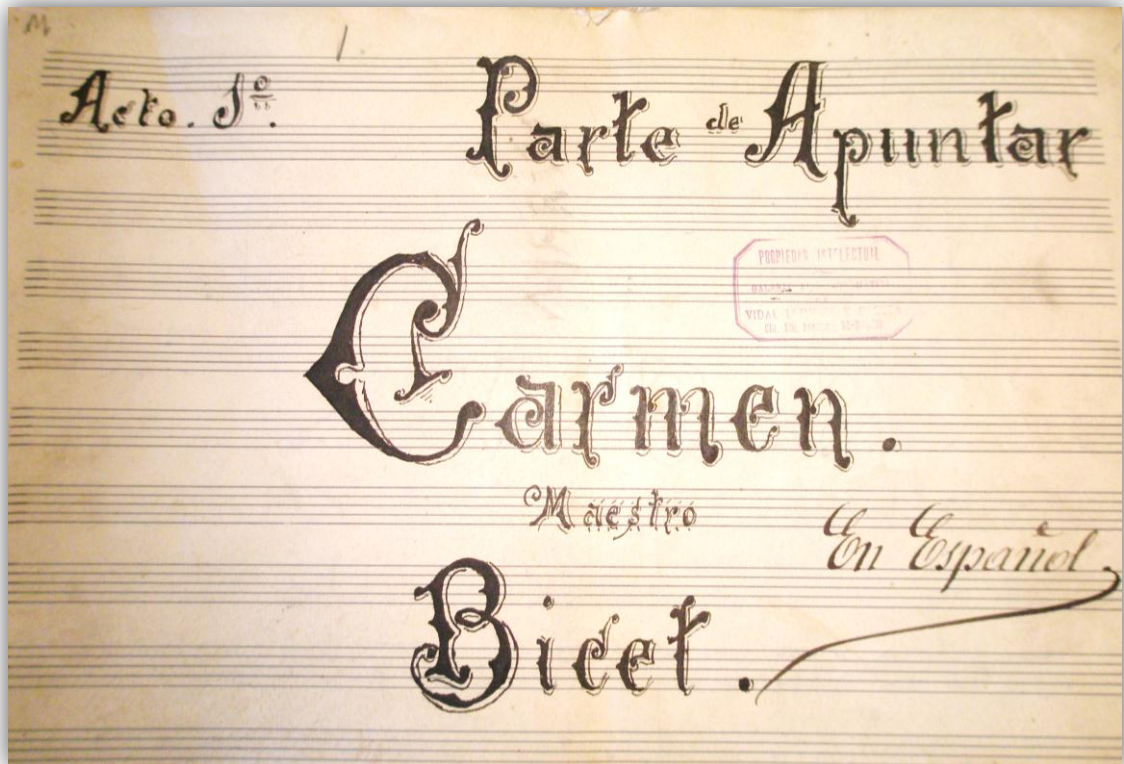 1.
Acto. 1º.
Parte de Apuntar
PROPIEDAD INTELECTUAL
VIDAL
Carmen.
Maestro
En Español
Bicet.